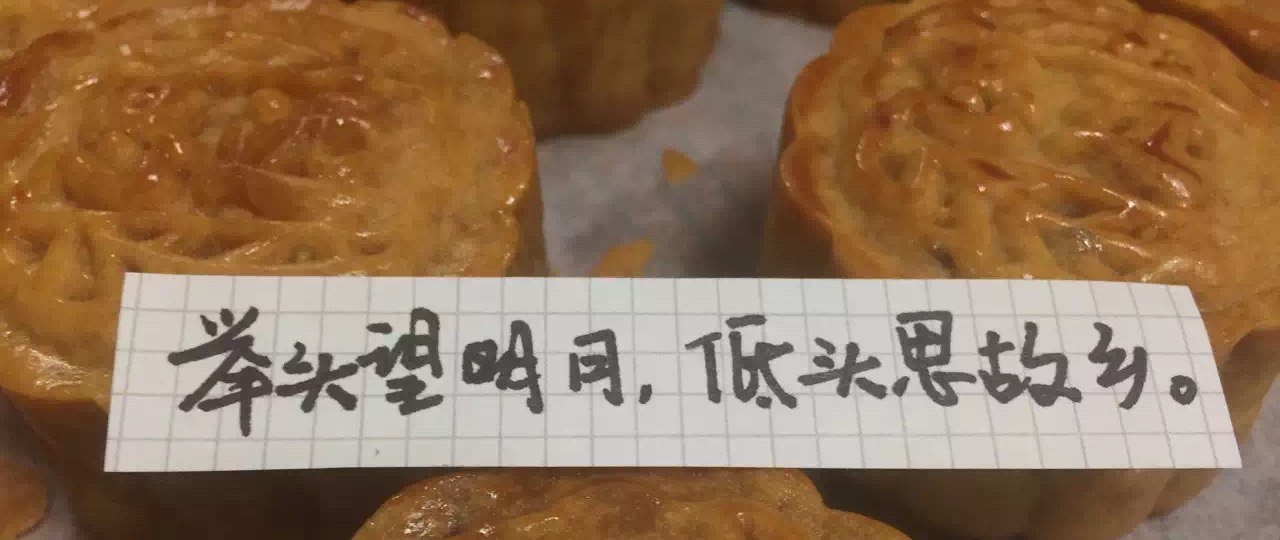 举头望明月,低头思故乡。